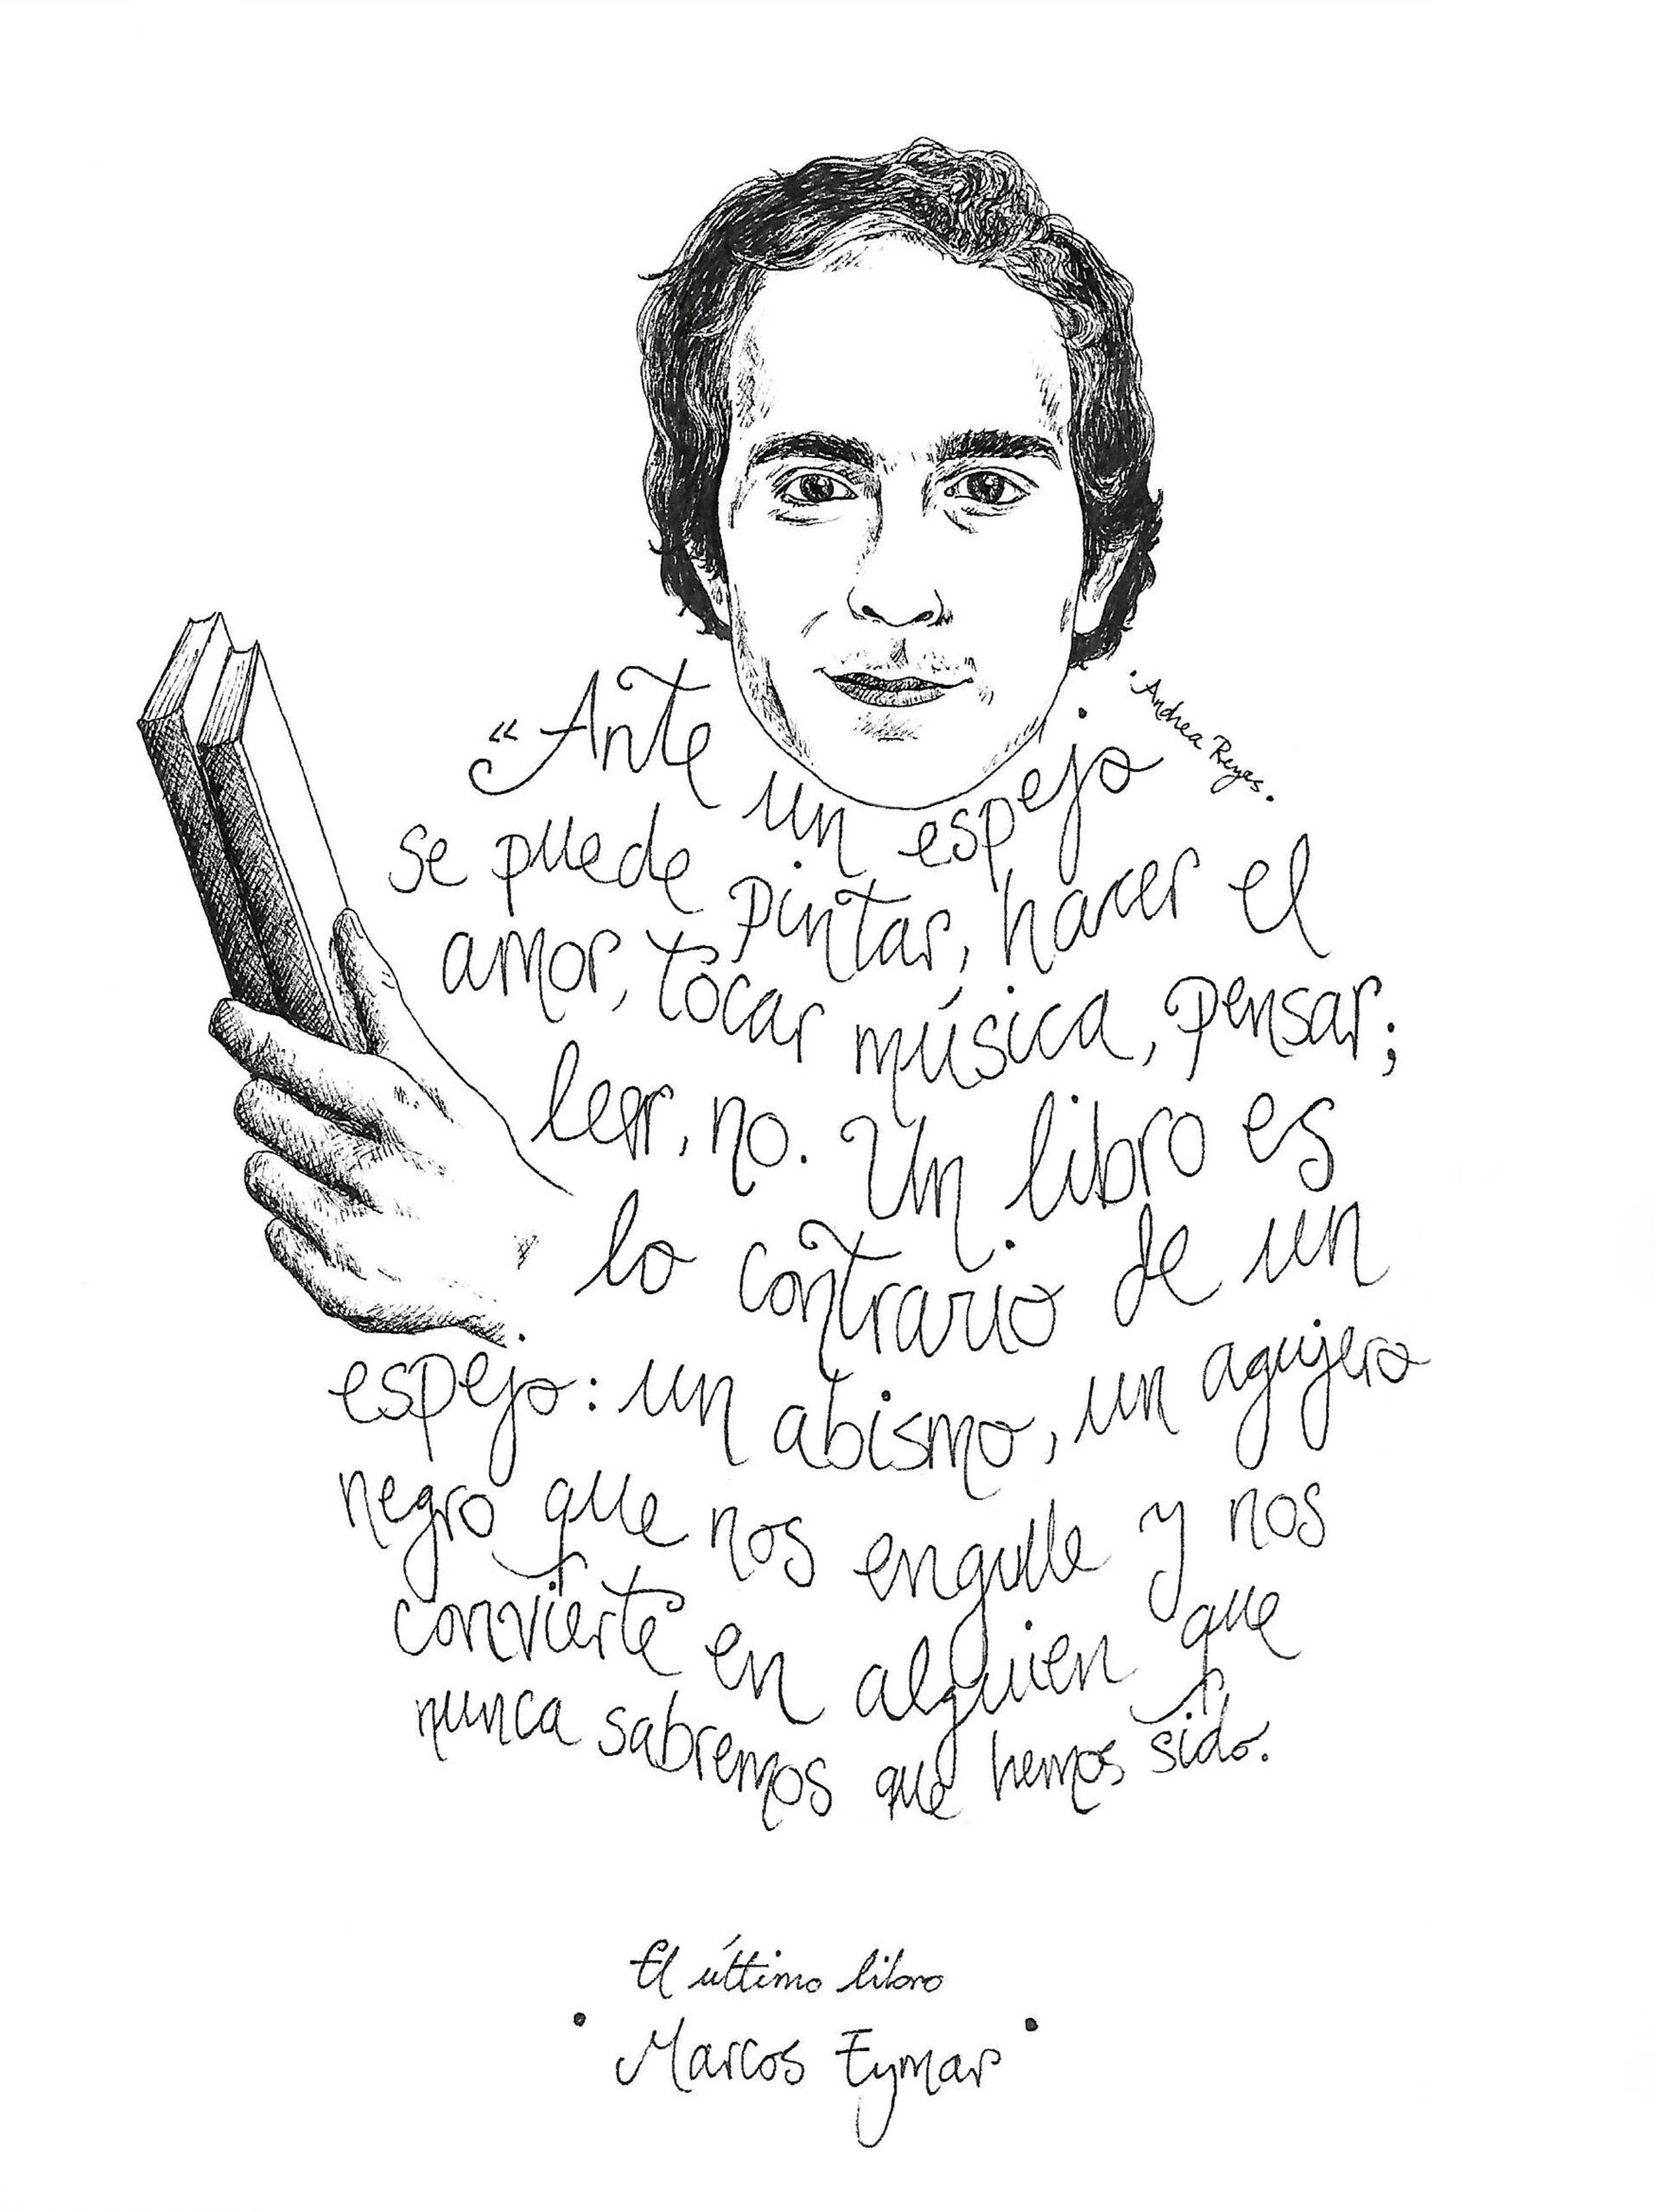 «Ante un espejo
se puede pintar, hacer el
amor, tocar música, pensar;
leer, no. Un libro es
lo contrario de un
espejo: un abismo, un agujero
negro que nos engulle y nos
convierte en alguien que
nunca sabremos que hemos sido.
·Andrea Reyes.
El último libro
· Marcos Eymar ·